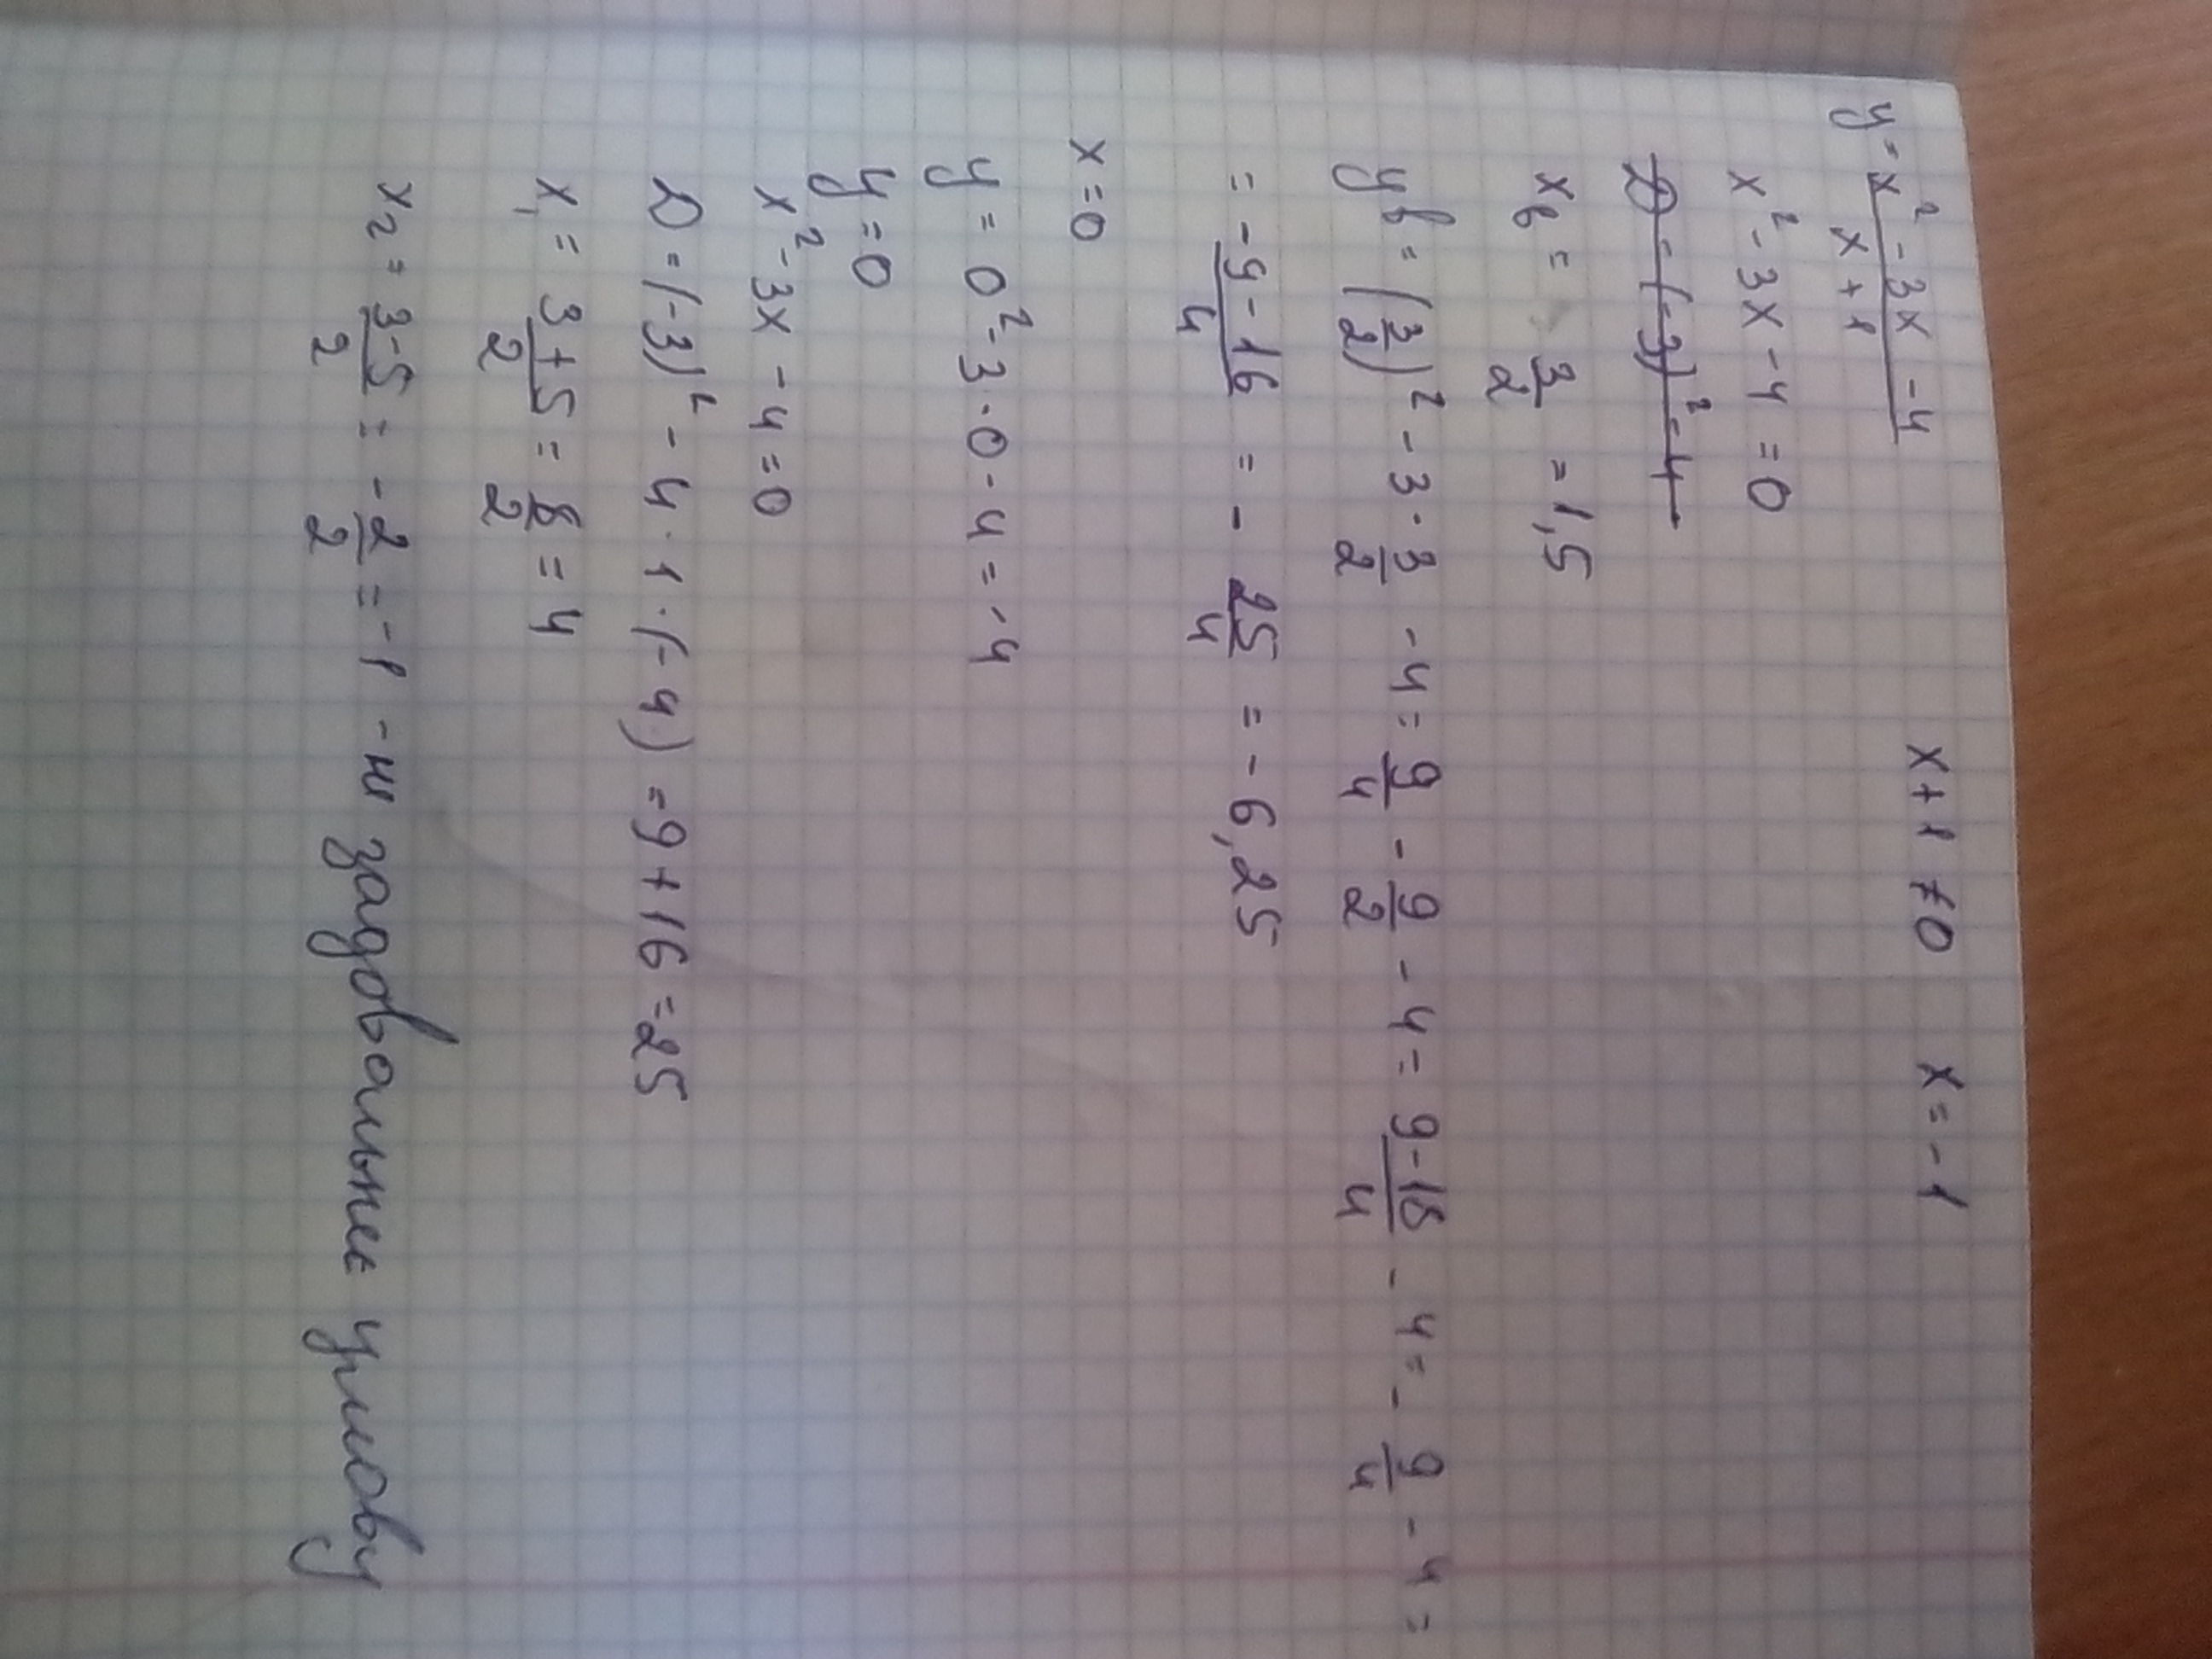 y = x² - 3x - 4 / x + 1    x + 1 ≠ 0    x = -1
x² - 3x - 4 = 0
D = (-3)² - 4
xв = 3/2 = 1,5
yв = (3/2)² - 3 · 3/2 - 4 = 9/4 - 9/2 - 4 = 9-18/4 - 4 = - 9/4 - 4 =
= -9-16/4 = - 25/4 = -6,25
x = 0
y = 0² - 3 · 0 - 4 = -4
y = 0
x² - 3x - 4 = 0
D = (-3)² - 4 · 1 · (-4) = 9 + 16 = 25
x₁ = 3+5/2 = 8/2 = 4
x₂ = 3-5/2 = -2/2 = -1 - не задовольняє умову